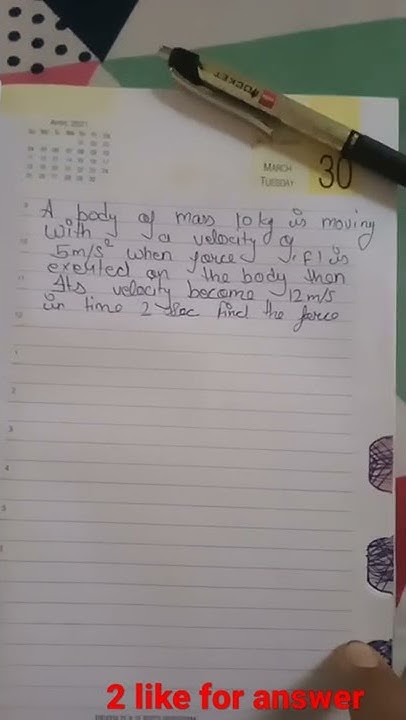 APRIL 2021
ROCKET
MARCH
TUESDAY
30
A body of mass 10 kg is moving
with a velocity of
5m/s² when force 'F' is
exerted on the body then
Its velocity become 12m/s
in time 2 sec find the force
9
10
11
12
1
2
3
4
5
6
2 like for answer